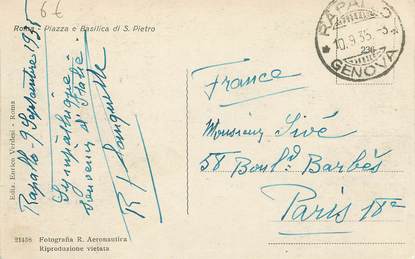 6€
Roma - Piazza e Basilica di S. Pietro
Rapallo - 9 Septembre 1935
Sympathique
souvenir d'Italie
Ediz. Enrico Verdesi - Roma
21458 Fotografia R. Aeronautica
Riproduzione vietata
RAPALLO
10.9.35
GENOVA
France
Monsieur Sivé
58 Boul.d Barbès
Paris 18e